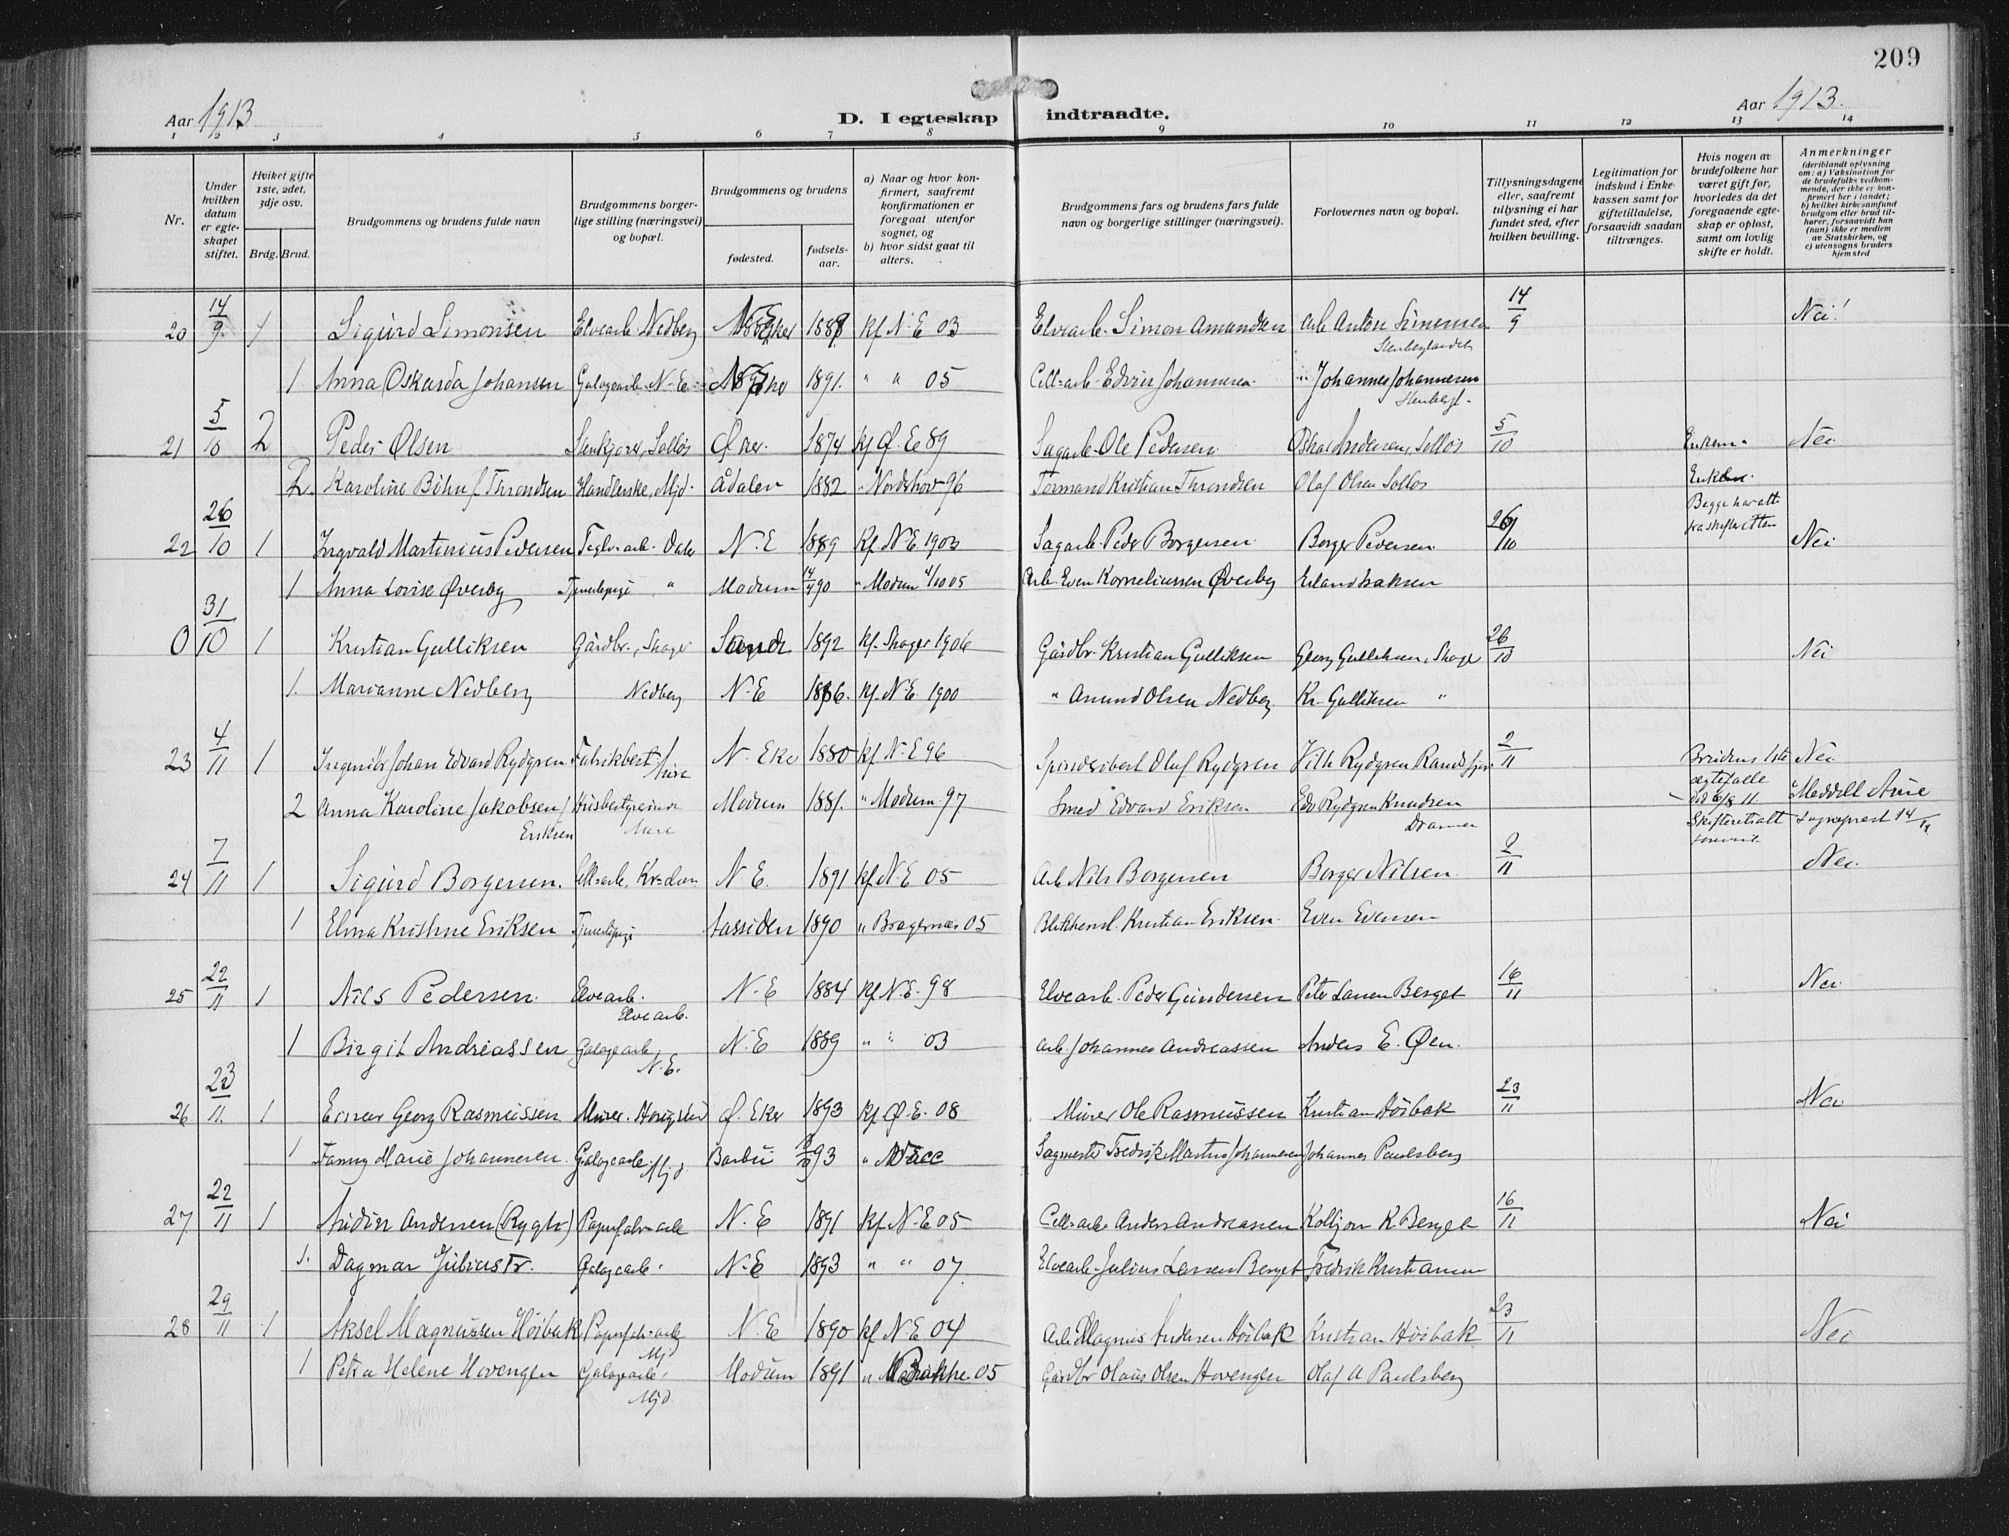 209
Aar 1913
D. I egteskap indtraadte.
Aar 1913.
1 2 3 4 5 6 7 8 9 10 11 12 13 14
Nr.
Under hvilken datum er egteskapet stiftet.
Hviket gifte 1ste, 2det, 3dje osv.
Brdg. Brud.
Brudgommens og brudens fulde navn
Brudgommens borgerlige stilling (næringsvei) og bopæl.
Brudgommens og brudens
fødested.
fødselsaar.
a) Naar og hvor konfirmert, saafremt konfirmationen er foregaat utenfor sognet, og
b) hvor sidst gaat til alters.
Brudgommens fars og brudens fars fulde navn og borgerlige stillinger (næringsvei).
Forlovernes navn og bopæl.
Tillysningsdagene eller, saafremt tillysning ei har fundet sted, efter hvilken bevilling.
Legitimation for indskud i Enkekassen samt for giftetilladelse, forsaavidt saadan tiltrænges.
Hvis nogen av brudefolkene har været gift før, hvorledes da det foregaaende egteskap er opløst, samt om lovlig skifte er holdt.
Anmerkninger
(deriblandt oplysning om: a) Vaksination for de brudefolks vedkommende, der ikke er konfirmert her i landet; b) hvilket kirkesamfund brudgom eller brud tilhører, forsaavidt han (hun) ikke er medlem av Statskirken, og c) utensogns bruders hjemsted
20 14/9 1 Sigurd Simonsen Elvearb. Nedberg 1889 kf N.E 03 Elvearb. Simon Amundsen Arb Anton Simensen 14/9 Nei!
1 Anna Oskarda Johansen Galogearb. N.E. 1891. " " 05 Cell-arb. Edvin Johannesen " Johannes Johannesen
21 5/10 2 Peder Olsen Stenkjører, Solløs Ø. ker. 1874 kf Ø.E 89 Sagarb. Ole Pedersen Oskar Andersen, Solløs 5/10 Enkem. Nei
2 Karoline Bøhn f Throndsen Handlerske, Mjd. Ådalen 1882 " Nordshov 96 Tormand Kristian Throndsen Olaf Olsen Solløs Enke
Begge har att
fra skifteretten
22 26/10 1 Ingvald Martinius Pedersen Teglv-arb. Daler N.E 1889 Kf N.E 1903 Sagarb. Peder Borgersen Borger Pedersen 26/10 Nei
1 Anna Lovise Øverby Tjenestepige " Modum 14/9 90 " Modum 1/10 05 Arb. Even Korneliussen Øverby Erland Isaksen
0 31/10 1 Kristian Gulliksen Gårdbr., Skoger Sande 1892 kf. Skoger 1906 Gårdbr. Kristian Gulliksen Georg Gulliksen, Skoger 26/10 Nei
1. Marianne Nedberg Nedberg N.E 1886. kf. N.E 1900 " Amund Olsen Nedberg Kr. Gulliksen "
23 4/11 1 Ingeniør Johan Edvard Rydgren Fabrikbest. N. Eke 1880 kf N.E 96 Spinderibest Olaf Rydgren Vilh Rydgren Randsfjor 2/11 Brudens 1ste Nei
ægtefælle
død 6/8 11
2 Anna Karoline Jakobsen f Eriksen Husbestyrerinde Modum 1881. " Modum 97 Smed Edvard Eriksen Edv Rydgren Knudsen Drammen
Skifteretsatt Sogneprest 14/11
24 7/11 1 Sigurd Borgersen. N.E. 1891 kf N.E 05 Arb Nils Borgersen Borger Nilsen 2/11 Nei.
1 Elma Kristine Eriksen Tjenestepige Aassiden 1890 " Bragernæs 05 Blikkensl. Kristian Eriksen Even Evensen
25 22/11 1 Nils Pedersen Elvearb. N.E 1884 kf N.E. 98 Elvearb. Peder Gundersen Peter Larsen Berget 16/11 Nei
Elvearb.
1 Birgit Andreassen Galogearb. N.E. N.E 1889 " " 03 arb. Johannes Andreassen Anders E. Øen.
26 23/11 1 Einar Georg Rasmussen Murer. Ø. Eker 1893 kf Ø.E. 08 Murer Ole Rasmussen Kristian Høibak 23/11 Nei
1 Fanny Marie Johannesen Galogearb. Mjd Barbu 93 " Sagmester Fredrik Martin Johannesen Johannes Paulsberg
27 22/11 1 Andersen (Rygh) Papirfabr-arb N.E 1891 kf N.E 05 Cell-arb. Anders Andreassen Kolbjørn K. Berget 16/11 Nei
1. Dagmar Juliusdtr. Galogearb. N.E 1893 " " 07 Elvearb. Julius Larsen Berget Fredrik Kristiansen
28 29/11 1 Aksel Magnussen Høibak Papirfabr-arb Mj N.E 1890 kf N.E 04 Arb Magnus Andersen Høibak Kristian Høibak 23/11 Nei
1 Petra Helene Hovengen Galogearb. Mjd. Modum 1891 " 05 Gårdbr Olaus Olsen Hovengen Olaf A Paulsberg